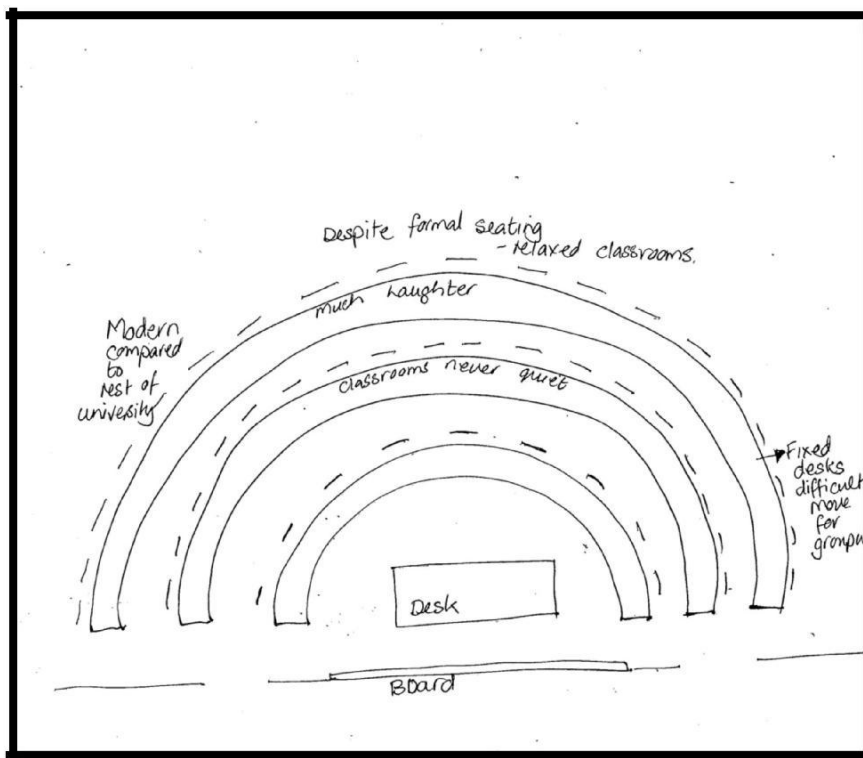 Despite formal seating
- relaxed classrooms.
much laughter
Modern
compared
to
rest of
university
classrooms never quiet
Fixed
desks
difficult
move
for
groupw
Desk
Board